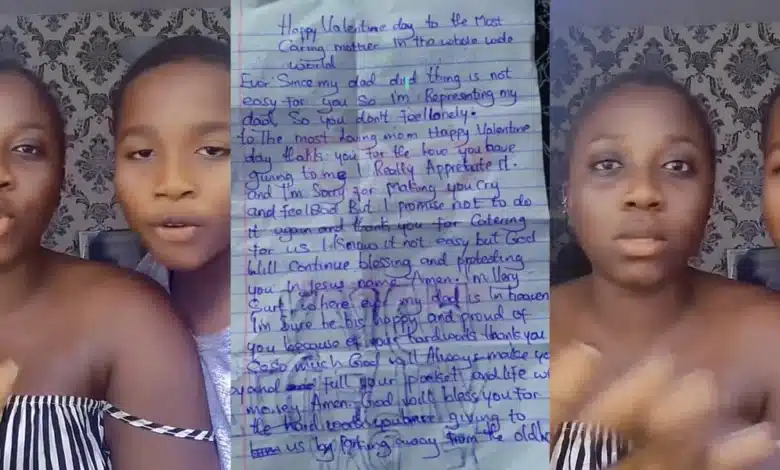 Happy Valentine day to the Most
Caring mother in the whole wide
world
Ever Since my dad died thing is not
easy for you So I'm Representing my
dad So you don't feel lonely.
to The most loving mom Happy Valentine
day thanks you for the love you have
giving to me I Really Appretiate it.
and I'm Sorry for making you cry
and feel Bad But I promise not to do
it again and thank you for Catering
for us I know it not easy but God
will continue blessing and protesting
you in Jesus name Amen.
Surt where ever my dad is in heaven
I'm Sure he his happy and proud of
you because of your hardwork thank you
so much God will Always make
and full your pocket and life
money Amen. God will bless you for
the hard you have giving to
us by away from the